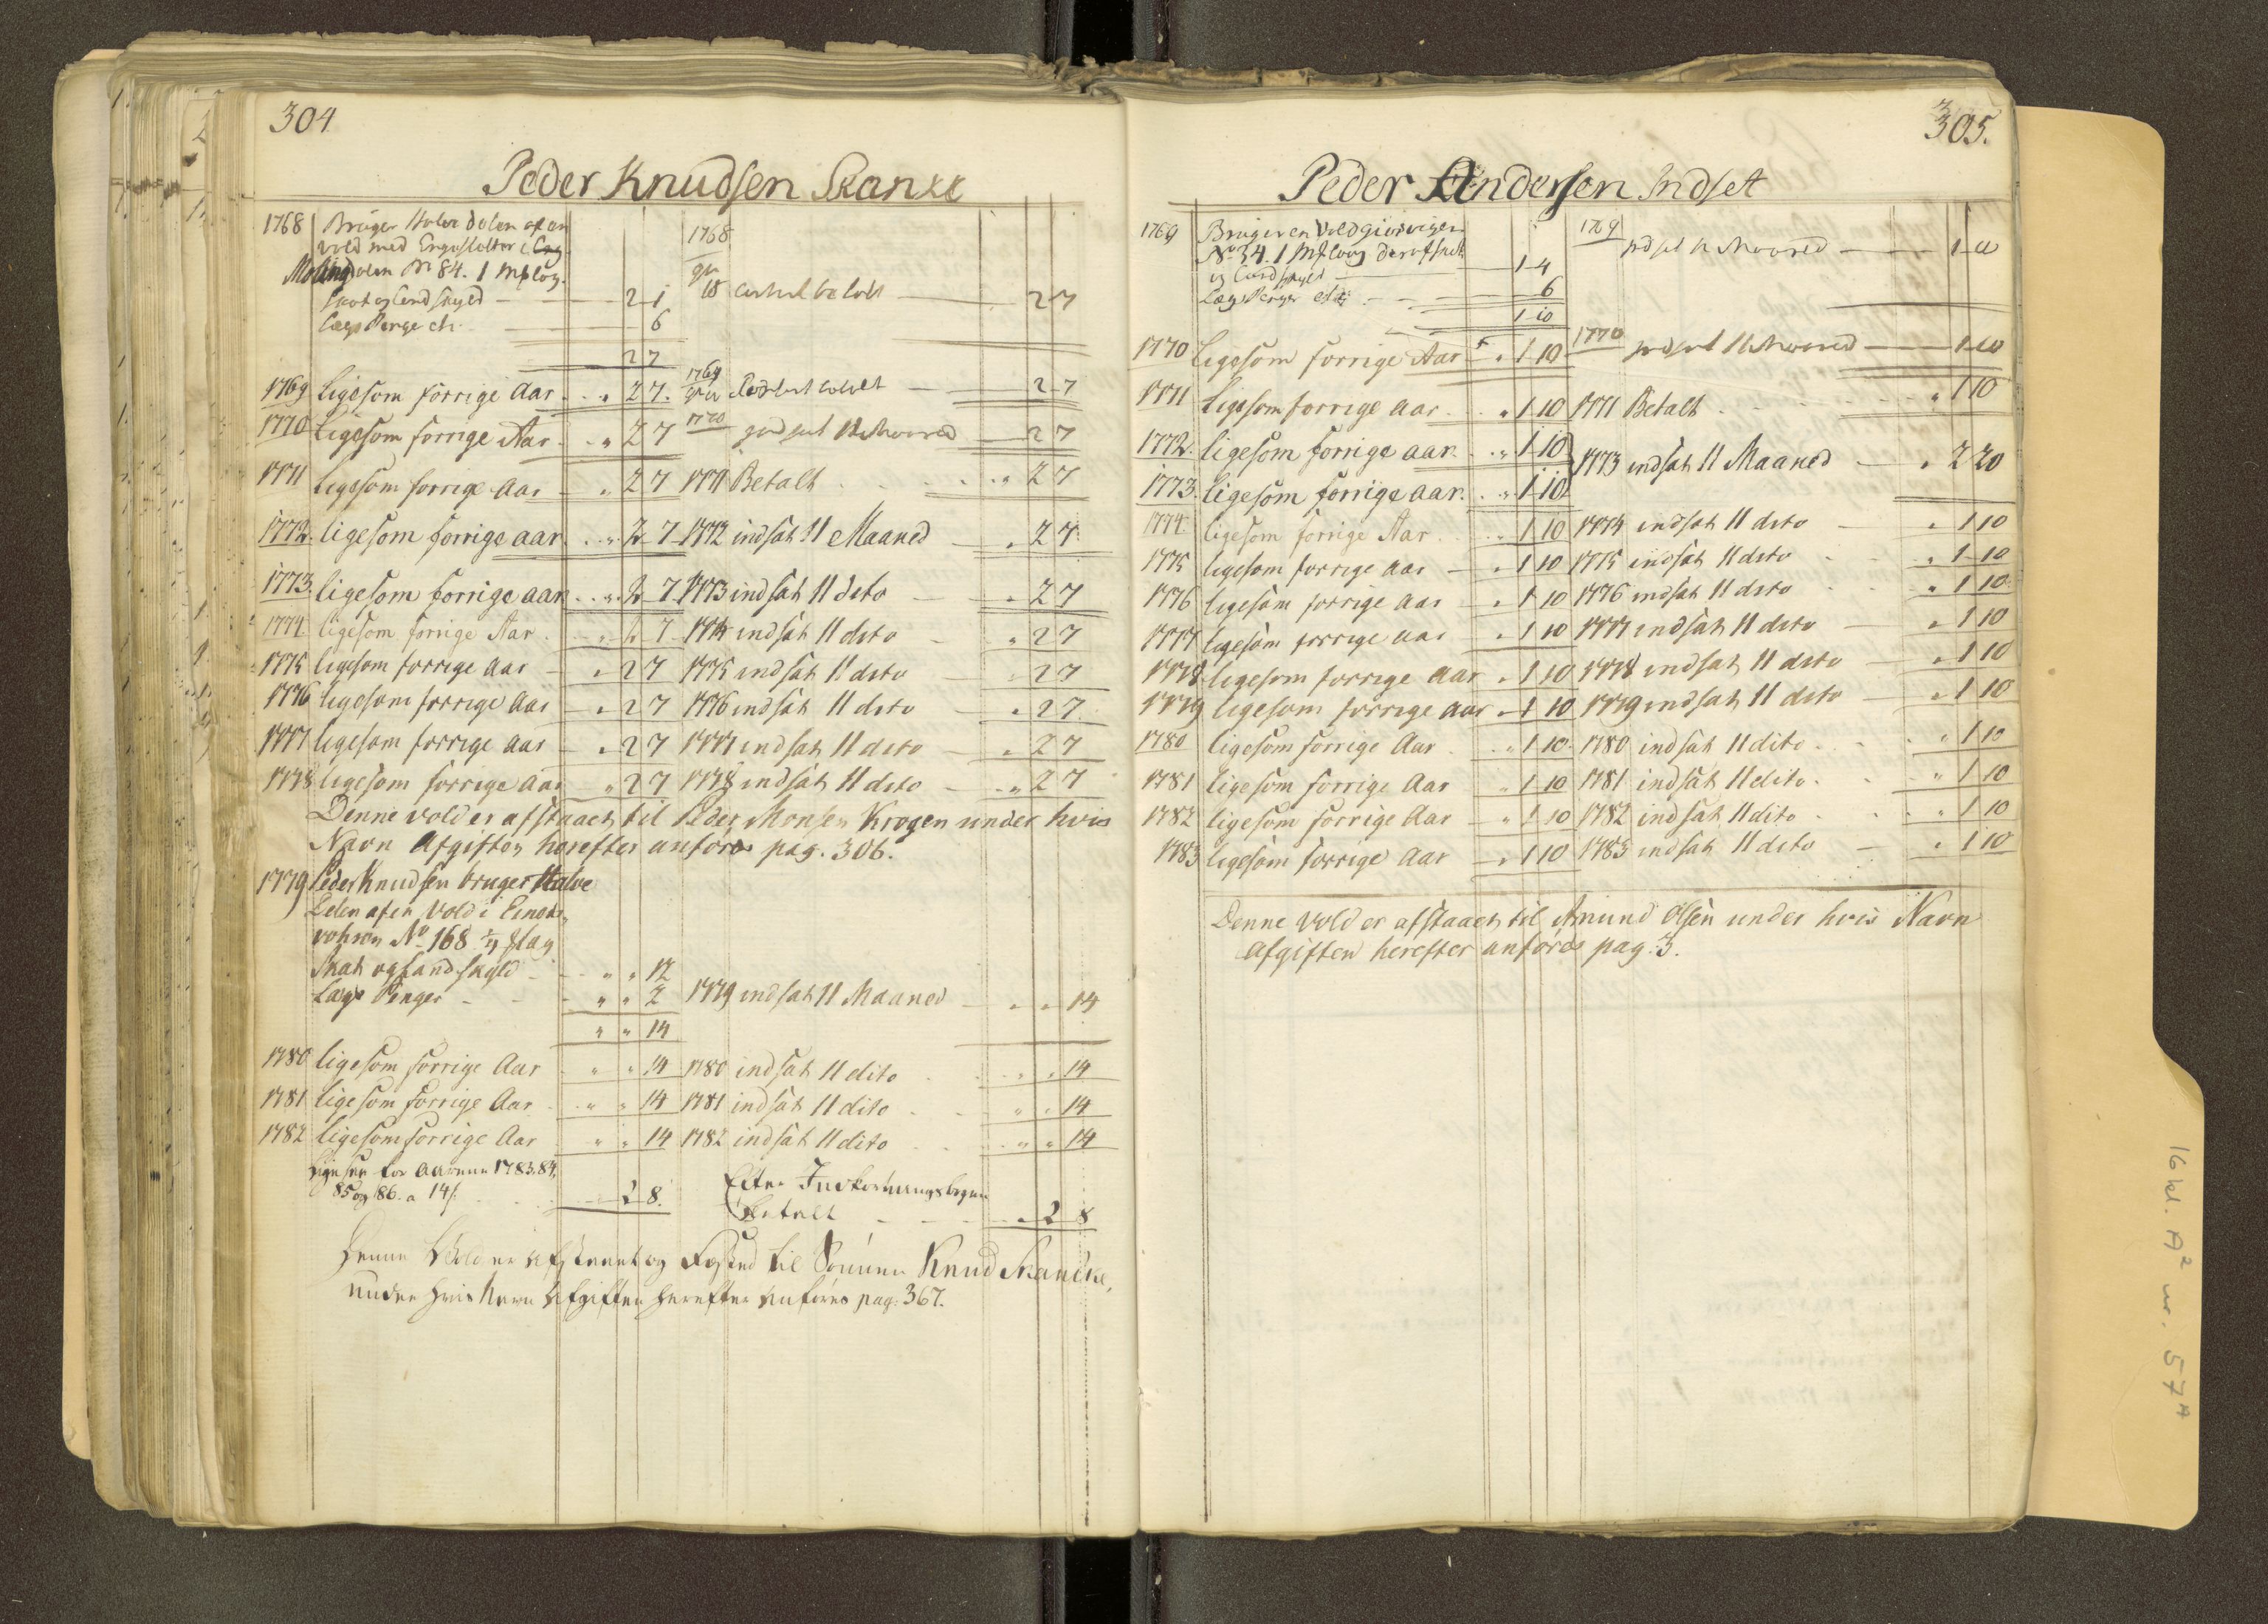 304
Peder Knudsen Skanke
1768 Bruger Halve delen af en
vold med Engesletter i
Molingdalen No 84. 1 Mk
Skat og Landskyld 2 1
Lægs Penge 6
2 7
1768
18 betalt 2 7
1769 ligesom forrige Aar 2 7. 1769 betalt 2 7
1770 ligesom forrige Aar " 2 7 1770 indsat 11 Maaned 2 7
1771 ligesom forrige Aar " 2 7 1771 Betalt " 2 7
1772. ligesom forrige aar " 2 7 1772 indsat 11 Maaned " 2 7
1773. ligesom forrige aar " 2 7 1773 indsat 11 dito " 2 7
1774 ligesom forrige Aar " 2 7 1774 indsat 11 dito " 2 7
1775 ligesom forrige Aar " 2 7 1775 indsat 11 dito " 2 7
1776 ligesom forrige Aar " 2 7 1776 indsat 11 dito " 2 7
1777 ligesom forrige aar " 2 7 1777 indsat 11 dito " 2 7
1778 ligesom forrige aar " 2 7 1778 indsat 11 dito " 2 7
Denne vold er afstaaet til Peder Monsen Krogen under hvis
Navn Afgiften herefter anføres pag. 306.
1779 Peder Knudsen bruger Halve
Delen af en Vold i
No 168
Skat og Landskyld " " 12
Lægs Penger " " 2 1779 indsat 11 Maaned " " 14
" " 14
1780 ligesom forrige Aar " " 14 1780 indsat 11 dito " " 14
1781 ligesom forrige Aar " " 14 1781 indsat 11 dito " " 14
1782 ligesom forrige Aar " " 14 1782 indsat 11 dito " " 14
Ligesaa for Aarene 1783, 84,
85 og 86. a 14 ſ. 2 8. Efter Indkortningsbogen
Betalt " 2 8
Denne Vold er afstaaet og Fæsted til Sønnen Knud Skancke,
under hvis Navn Afgiften herefter anføres pag: 367.
305.
Peder Andersen Indset
1769 Bruger en Vold
No 34. 1 Mk deraf skat
og Landskyld 1 4
Lægs Penger 6
1 10
1769 indsat 11 Maaned 1 10
1770 Ligesom forrige Aar " 1 10 1770 indsat 11 Maaned 1 10
1771 Ligesom forrige Aar " 1 10 1771 Betalt " 1 10
1772. ligesom forrige aar " 1 10
1773. ligesom forrige aar. " 1 10 1773 indsat 11 Maaned " 2 20
1774 ligesom forrige Aar " 1 10 1774 indsat 11 dito " 1 10
1775 ligesom forrige Aar " 1 10 1775 indsat 11 dito " 1 10
1776 ligesom forrige Aar " 1 10 1776 indsat 11 dito " 1 10
1777 ligesom forrige aar " 1 10 1777 indsat 11 dito " 1 10
1778 ligesom forrige aar " 1 10 1778 indsat 11 dito " 1 10
1779 ligesom forrige aar " 1 10 1779 indsat 11 dito " 1 10
1780 ligesom forrige Aar " 1 10 1780 indsat 11 dito " 1 10
1781 ligesom forrige Aar " 1 10 1781 indsat 11 dito " 1 10
1782 ligesom forrige Aar " 1 10 1782 indsat 11 dito " 1 10
1783 ligesom forrige Aar " 1 10 1783 indsat 11 dito " 1 10
Denne Vold er afstaaet til Amund Olsen under hvis Navn
Afgiften herefter anføres pag: 3.
16 kl. A² nr. 57A